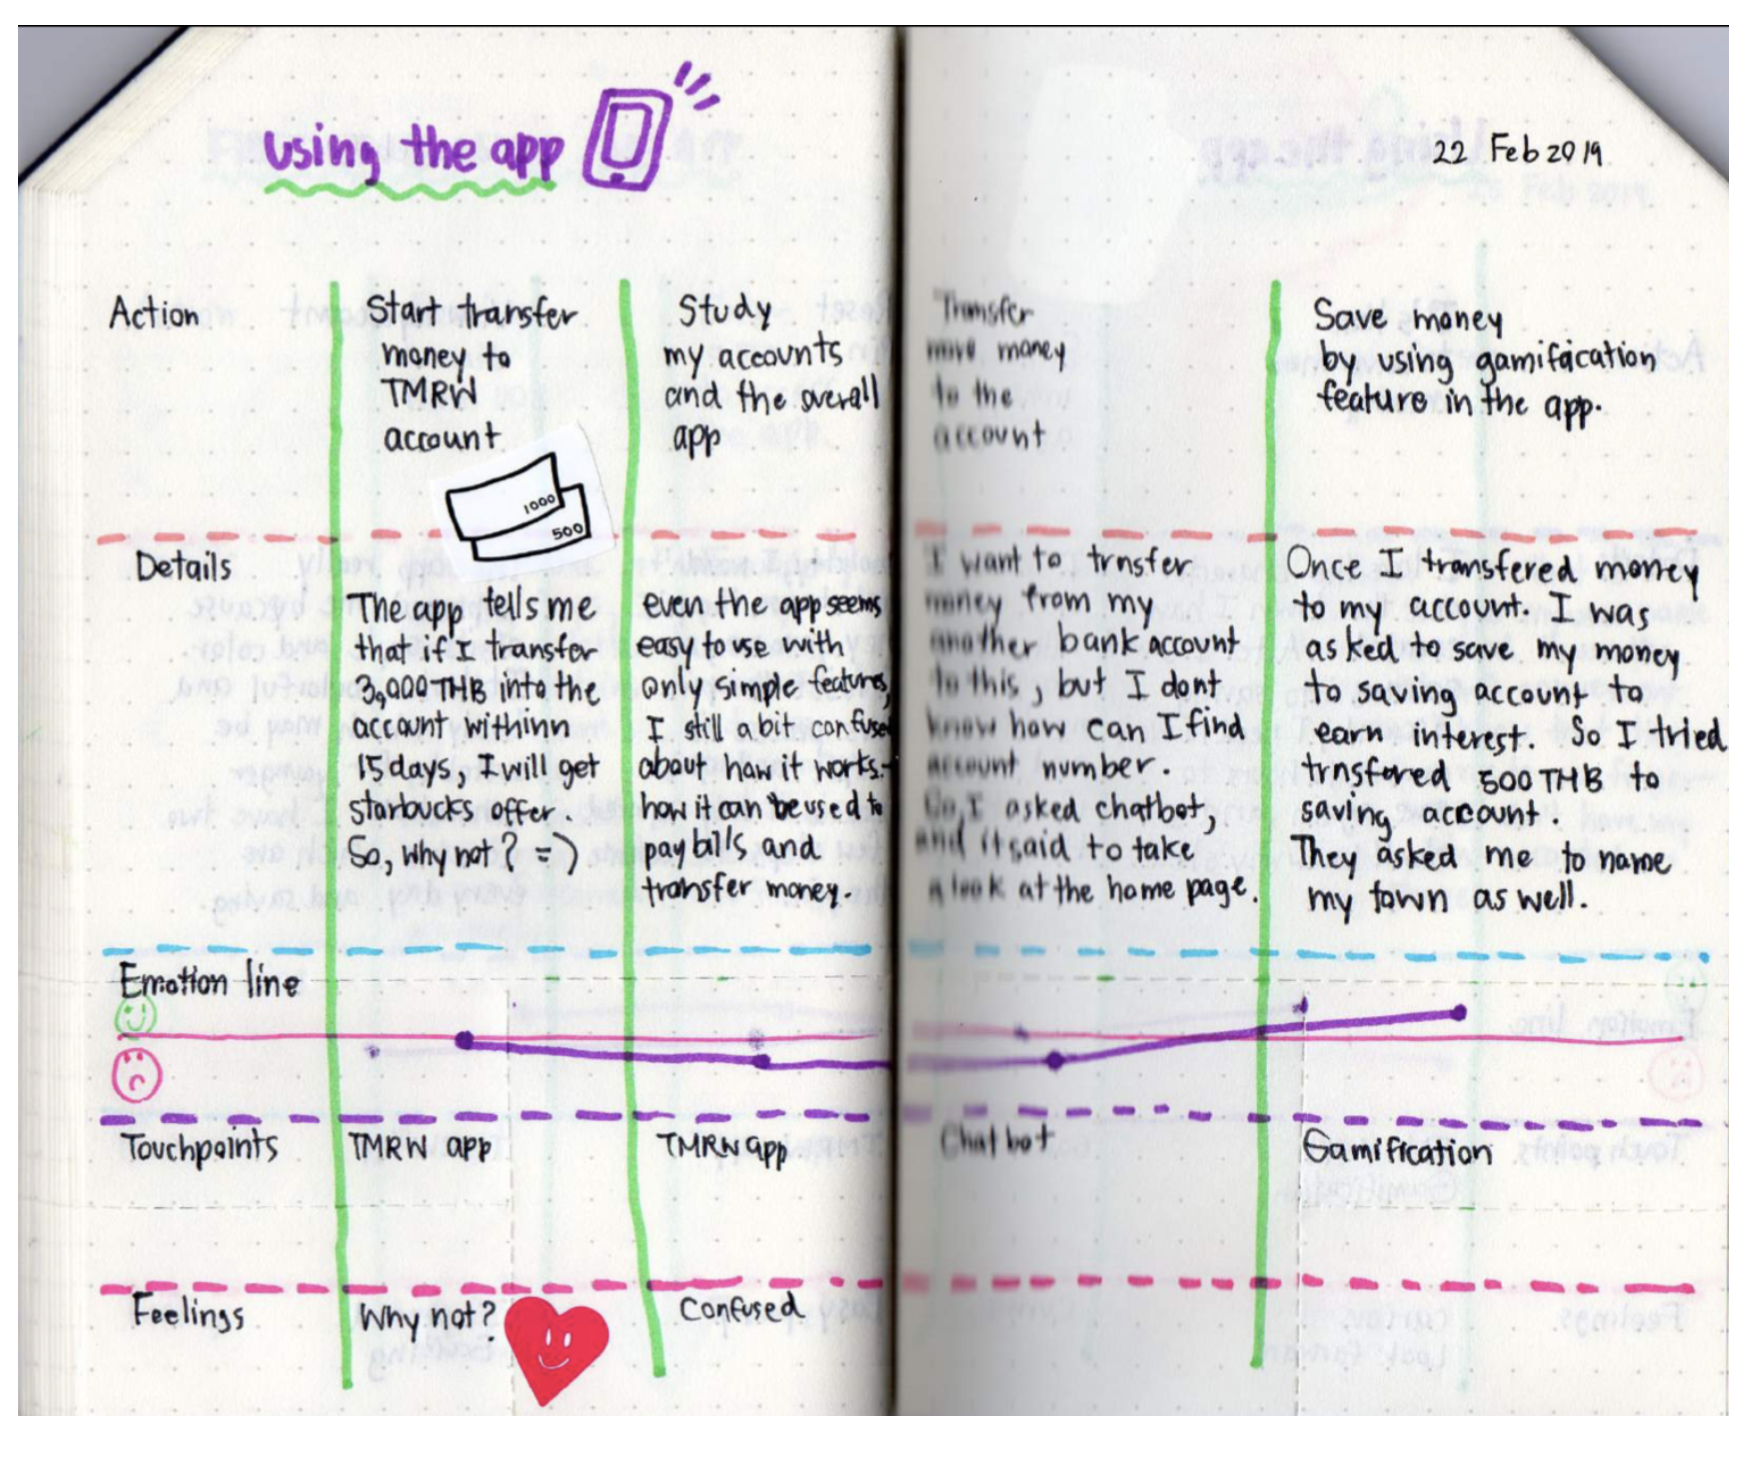 using the app
22 Feb 2019
Action
Start transfer
money to
TMRW
account
Study
my accounts
and the overall
app
Transfer
more money
to the
account
Save money
by using gamification
feature in the app.
1000
500
Details
The app tells me
that if I transfer
3,000 THB into the
account withinn
15 days, I will get
starbucks offer.
So, why not? =)
even the app seems
easy to use with
only simple features,
I still a bit confused
about how it works.
how it can be used to
pay bills and
transfer money.
I want to trnsfer
money from my
another bank account
to this, but I dont
know how can I find
account number.
So, I asked chatbot,
and it said to take
a look at the home page.
Once I transfered money
to my account. I was
asked to save my money
to saving account to
earn interest. So I tried
trnsfered 500 THB to
saving account.
They asked me to name
my town as well.
Emotion line
Touchpoints
TMRW app
TMRW app
Chat bot
Gamification
Feelings
Why not?
Confused